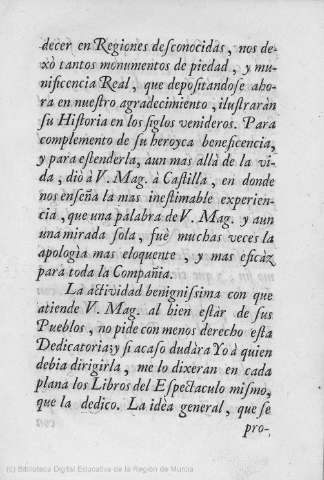 decer en Regiones desconocidas, nos de-
xò tantos monumentos de piedad, y mu-
nificencia Real, que depositandose aho-
ra en nuestro agradecimiento, ilustraràn
su Historia en los siglos venideros. Para
complemento de su heroyca beneficencia,
y para estenderla, aun mas allà de la vi-
da, diò à V. Mag. à Castilla, en donde
nos enseña la mas inestimable experien-
cia, que una palabra de V. Mag. y aun
una mirada sola, fuè muchas veces la
apologia mas eloquente, y mas eficàz
para toda la Compañia.
La actividad benignissima con que
atiende V. Mag. al bien estàr de sus
Pueblos, no pide con menos derecho esta
Dedicatoria; y si acaso dudàra Yo à quien
debia dirigirla, me lo dixeran en cada
plana los Libros del Espectaculo mismo,
que la dedico. La idèa general, que se
pro-
(c) Biblioteca Digital Educativa de la Región de Murcia